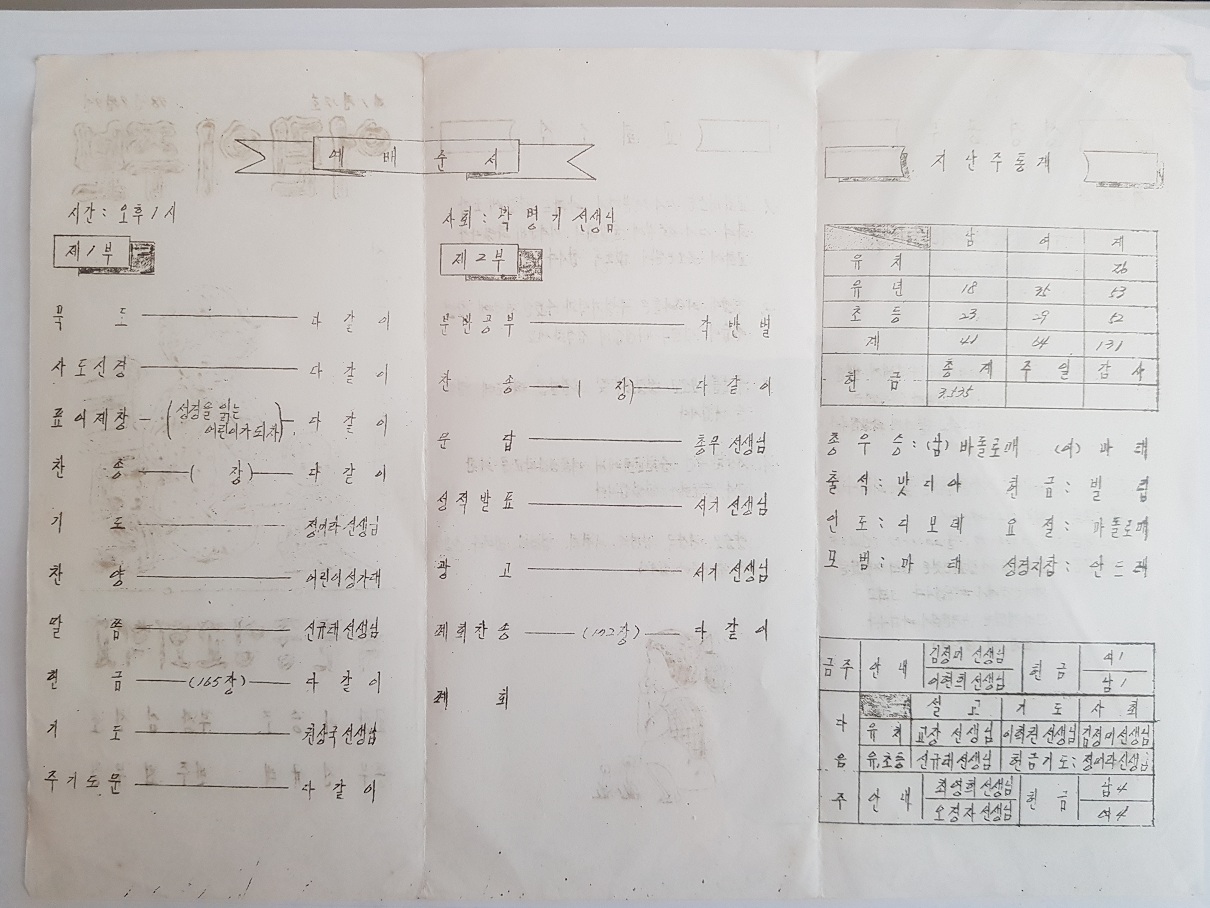 예 배 순 서
시간 : 오후 1시
제 1 부
묵 도 다 같 이
사도신경 다 같 이
표어제창 (성경을 읽는 어린이가 되자) 다 같 이
찬 송 ( 장) 다 같 이
기 도 정어라 선생님
찬 양 어린이성가대
말 씀 신규래 선생님
헌 금 (165장) 다 같 이
기 도 권상국 선생님
주기도문 다 같 이
사회 : 곽 명기 선생님
제 2 부
분반공부 각 반 별
찬 송 ( 장) 다 같 이
문 답 총무 선생님
성적발표 서기 선생님
광 고 서기 선생님
폐회찬송 (192장) 다 같 이
폐 회
지난주통계
남 여 계
유 치 26
유 년 18 35 53
초 등 23 29 52
계 41 64 131
헌 금 총 계 주 일 감 사
3,535
종 우 승 : (남) 바돌로매 (여) 마 태
출 석 : 맛 디 아 헌 금 : 빌 립
인 도 : 디 모 데 요 절 : 바돌로매
모 범 : 마 태 성경지참 : 안 드 레
금주 안 내 김정미 선생님 헌 금 여 1
이현희 선생님 남 1
다 음 주
설 교 기 도 사 회
유 치 교장 선생님 선생님 김정미 선생님
유,초등 신규래 선생님 헌금기도 : 정어라 선생님
안 내 최영희 선생님 헌 금 남 4
오경자 선생님 여 4